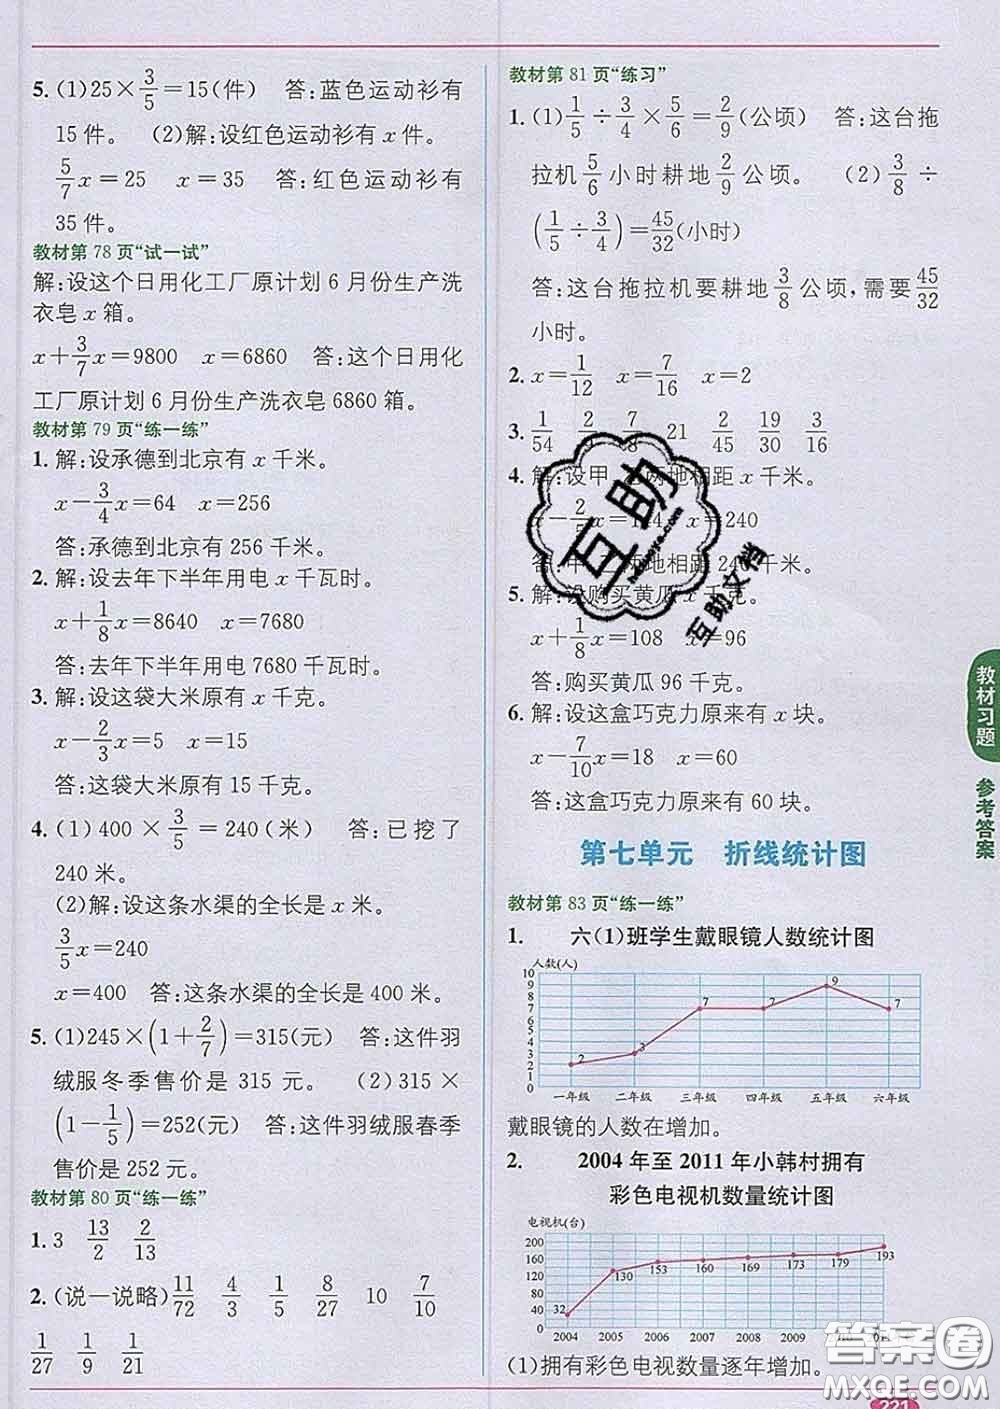 5. (1)25×3/5=15(件)　答:蓝色运动衫有
15件。　(2)解:设红色运动衫有x件。
5/7x=25　x=35　答:红色运动衫有
35件。
教材第78页“试一试”
解:设这个日用化工厂原计划6月份生产洗
衣皂x箱。
x+3/7x=9800　x=6860　答:这个日用化
工厂原计划6月份生产洗衣皂6860箱。
教材第79页“练一练”
1. 解:设承德到北京有x千米。
x-3/4x=64　x=256
答:承德到北京有256千米。
2. 解:设去年下半年用电x千瓦时。
x+1/8x=8640　x=7680
答:去年下半年用电7680千瓦时。
3. 解:设这袋大米原有x千克。
x-2/3x=5　x=15
答:这袋大米原有15千克。
4. (1)400×3/5=240(米)　答:已挖了
240米。
(2)解:设这条水渠的全长是x米。
3/5x=240
x=400　答:这条水渠的全长是400米。
5. (1)245×(1+2/7)=315(元)　答:这件羽
绒服冬季售价是315元。　(2)315×
(1-1/5)=252(元)　答:这件羽绒服春季
售价是252元。
教材第80页“练一练”
1. 3　13/2　2/13
2. (说一说略)11/72　4/3　1/5　8/27　10　7/10
1/27　1/9　1/21
教材第81页“练习”
1. (1)1/5÷3/4×5/6=2/9(公顷)　答:这台拖
拉机5/6小时耕地2/9公顷。　(2)3/8÷
(1/5÷3/4)=45/32(小时)
答:这台拖拉机要耕地3/8公顷,需要45/32
小时。
2. x=1/12　x=7/16　x=2
3. 1/54　2/9　7/8　21　2/45　19/30　3/16
4. 解:设甲、乙两地相距x千米。
x-2/5x=144　x=240
答:甲、乙两地相距240千米。
5. 解:设购买黄瓜x千克。
x+1/8x=108　x=96
答:购买黄瓜96千克。
6. 解:设这盒巧克力原来有x块。
x-7/10x=18　x=60
答:这盒巧克力原来有60块。
第七单元　折线统计图
教材第83页“练一练”
1.　六(1)班学生戴眼镜人数统计图
人数(人)
10
9
8
7
6
5
4
3
2
1
0
2　3　7　7　9　7
一年级　二年级　三年级　四年级　五年级　六年级
戴眼镜的人数在增加。
2.　2004年至2011年小韩村拥有
彩色电视机数量统计图
电视机(台)
200
160
120
80
40
0
32　130　153　160　169　173　179　193
2004　2005　2006　2007　2008　2009
(1)拥有彩色电视数量逐年增加。
教材习题
参考答案
221
互助
互助文档
答案圈
MXQE.COM